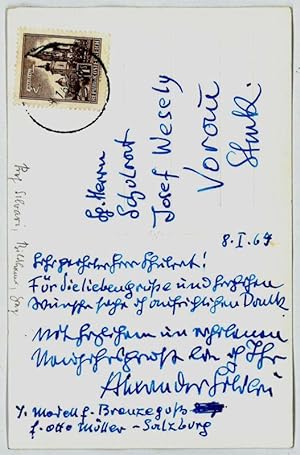 Herrn
Schulrat
Josef Wesely
Vorau
Stmk.
8.I.64
Sehr geehrter Herr Schulrat!
Für die lieben Grüße und herzlichen
Wünsche sage ich aufrichtigen Dank.
Mit herzlichen
Neujahrsgrüßen bin ich Ihr
Alexander Silveri
Modell f. Bronzeguß
f. Otto Müller - Salzburg
Prof Silveri, Bildhauer, Graz